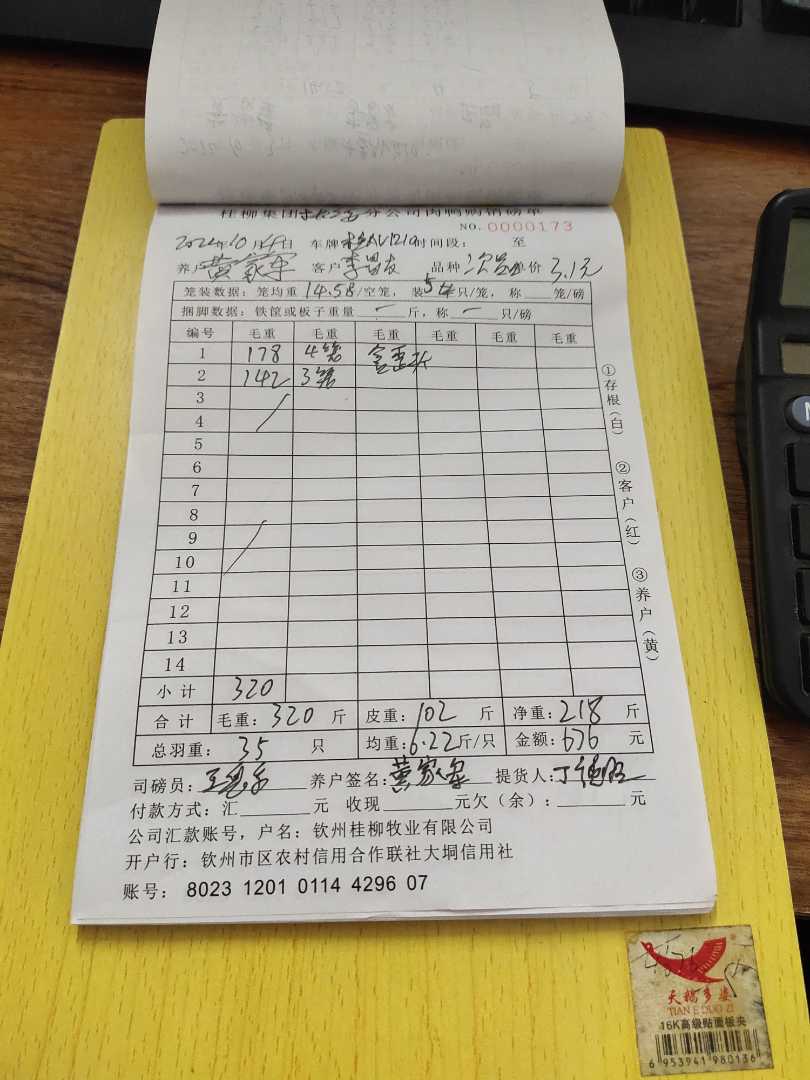 桂柳集团 分公司肉鸭购销磅单
NO. 0000173
年10月 日 车牌 时间段： 至
养户 黄家军 客户 李 友 品种 次 单价 3.1元
笼装数据：笼均重 14.58/空笼， 装 5 只/笼， 称 笼/磅
捆脚数据：铁筐或板子重量 一 斤，称 一 只/磅
编号 毛重 毛重 毛重 毛重 毛重 毛重
1 178 4笼 含歪头
2 142 3笼
3
4
5
6
7
8
9
10
11
12
13
14
小计 320
合计 毛重：320 斤 皮重：102 斤 净重：218 斤
总羽重： 35 只 均重：6.22斤/只 金额：676 元
司磅员： 养户签名：黄家军 提货人：丁
付款方式：汇 元 收现 元欠（余）： 元
公司汇款账号，户名：钦州桂柳牧业有限公司
开户行：钦州市区农村信用合作联社大垌信用社
账号： 8023 1201 0114 4296 07
①存根（白）
②客户（红）
③养户（黄）
天鹅多姿
TIAN E DUO ZI
16K高级贴面板夹
6 953941 980136